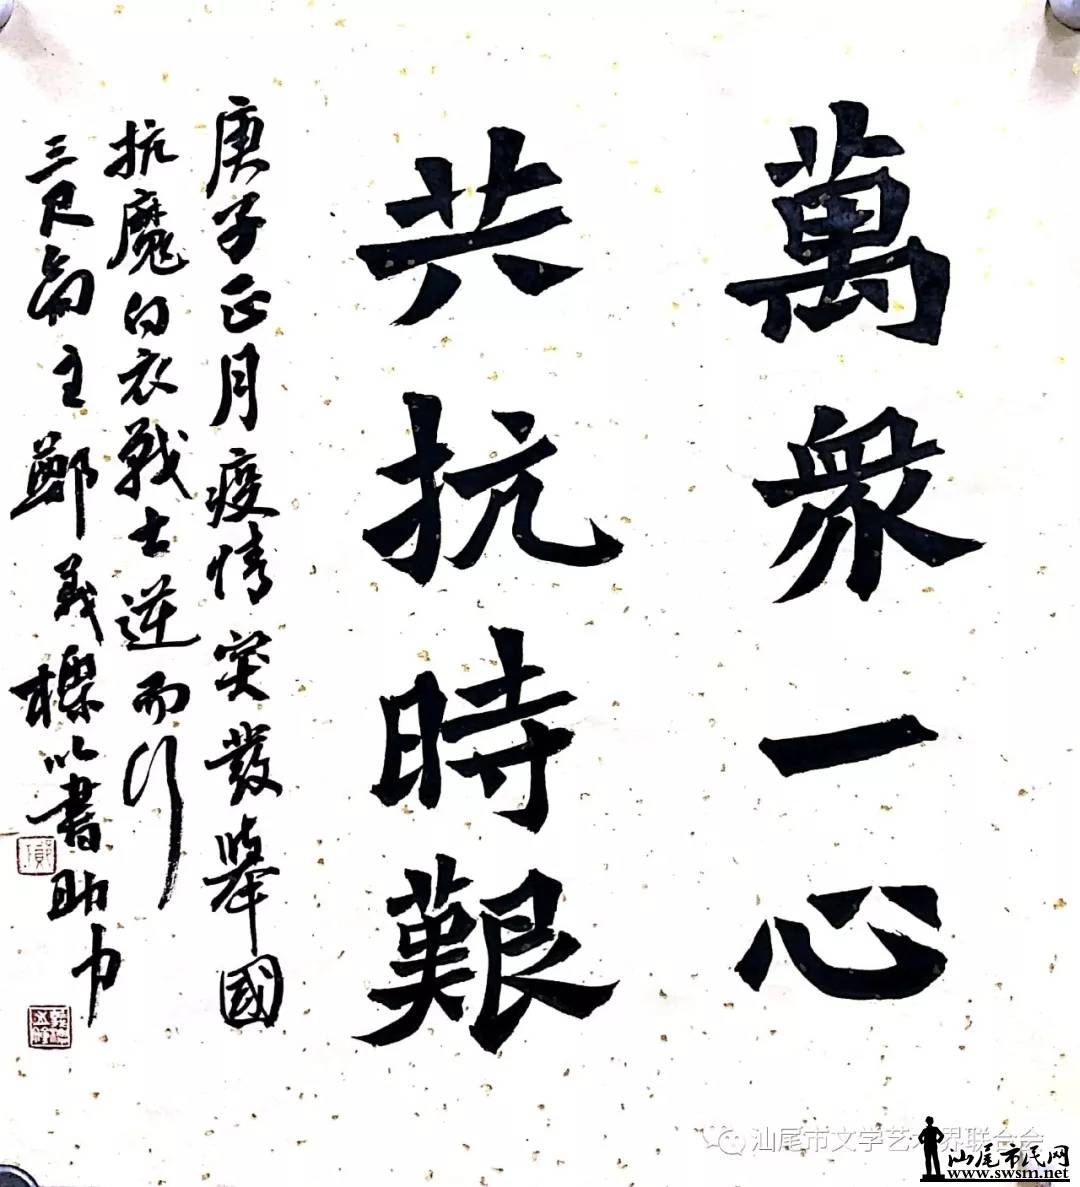 萬衆一心
共抗時艱
庚子正月疫情突發舉國
抗魔白衣戰士逆而行
三尺齋主鄭義櫟以書助力
汕尾市文学艺术界联合会
汕尾市民网
www.swsm.net